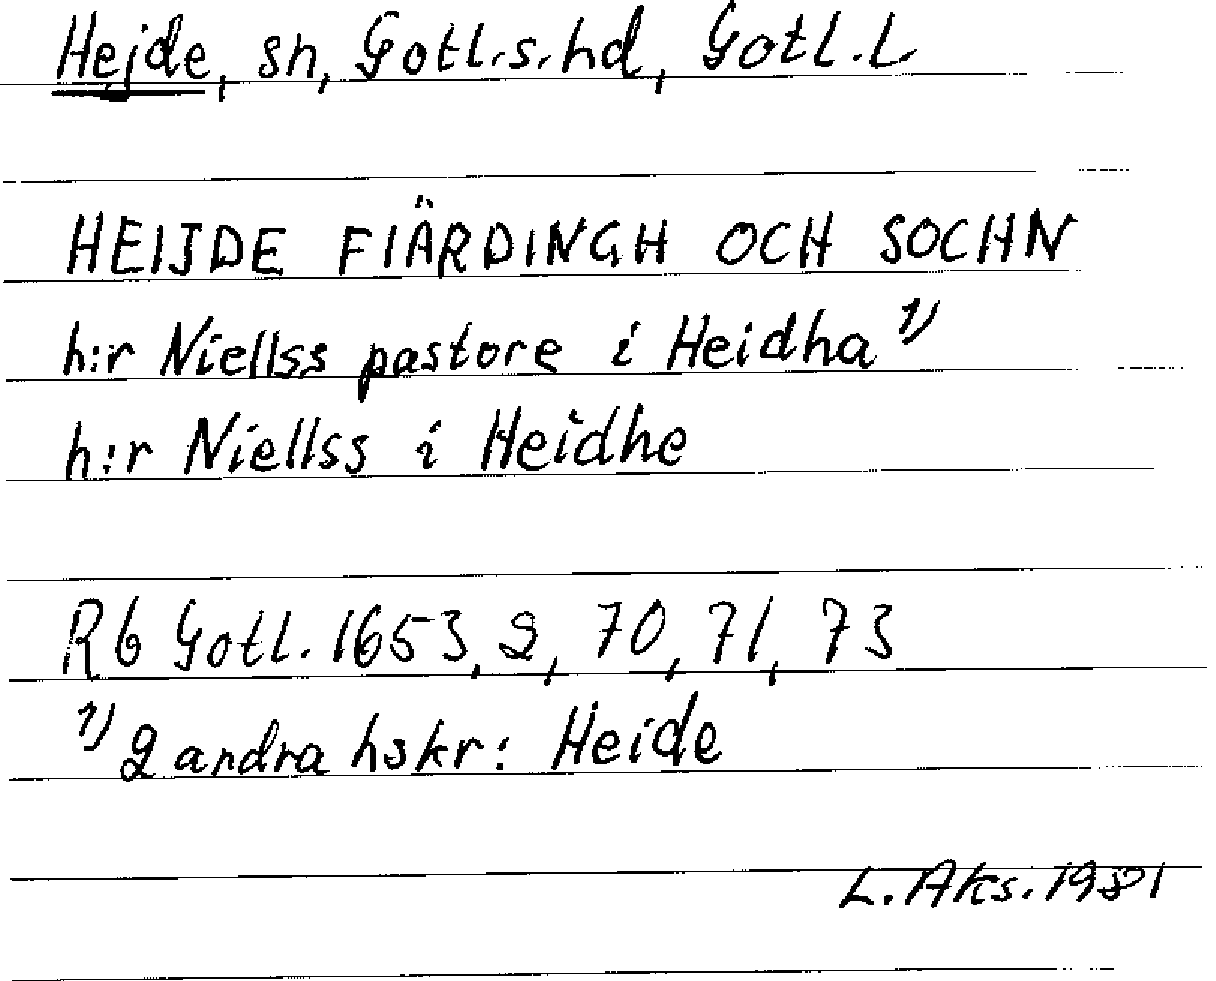 Hejde, sn, Gotl.s.hd, Gotl.L
HEIJDE FIÄRDINGH OCH SOCHN
h:r Niellss pastore i Heidha 1)
h:r Niellss i Heidhe
Rb Gotl. 1653, 2, 70, 71, 73
1) 2 andra hskr: Heide
L. Aks. 1981